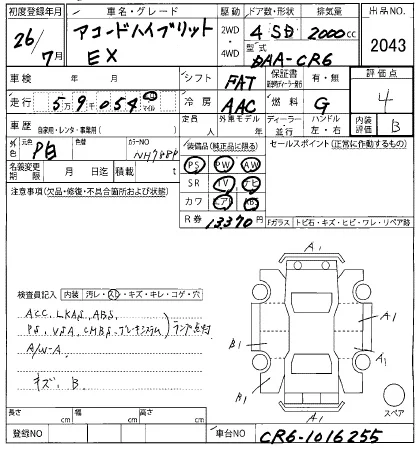 初度登録年月 車名・グレード 駆動 ドア数・形状 排気量 出品NO.
26/7月 アコードハイブリット EX 2WD・4WD 4 SD 2000cc 2043
型式 DAA-CR6
車検 年 月 シフト FAT 保証書 有・無 評価点
走行 59千054 マイル 冷房 AAC 燃料 G 4
車歴 自家用・レンタ・事業用( ) 定員 人 外国モデル 年 ディーラー 並行 ハンドル 左・右 内装評価 B
外色 元色 P白 色替 カラーNO NH788P
装備品(純正品に限る) セールスポイント(正常に作動するもの)
名義変更期限 月 日迄 積載 t
PS PW AW
注意事項(欠品・修復・不具合箇所および状態)
SR TV ナビ
カワ エアB ABS
R券 13,370円
Fガラス トビ石・キズ・ヒビ・ワレ・リペア跡
検査員記入 内装 汚レ・スレ・キズ・キレ・コゲ・穴
ACC, LKAS, ABS,
PS, VSA, CMBS, ブレーキシステム) ランプ点灯
A/W-A
キズ、B
A1
A1
B1
A1
A1
A1
スペア
長さ cm 幅 cm 高さ cm
登録NO 車台NO CR6-1016255